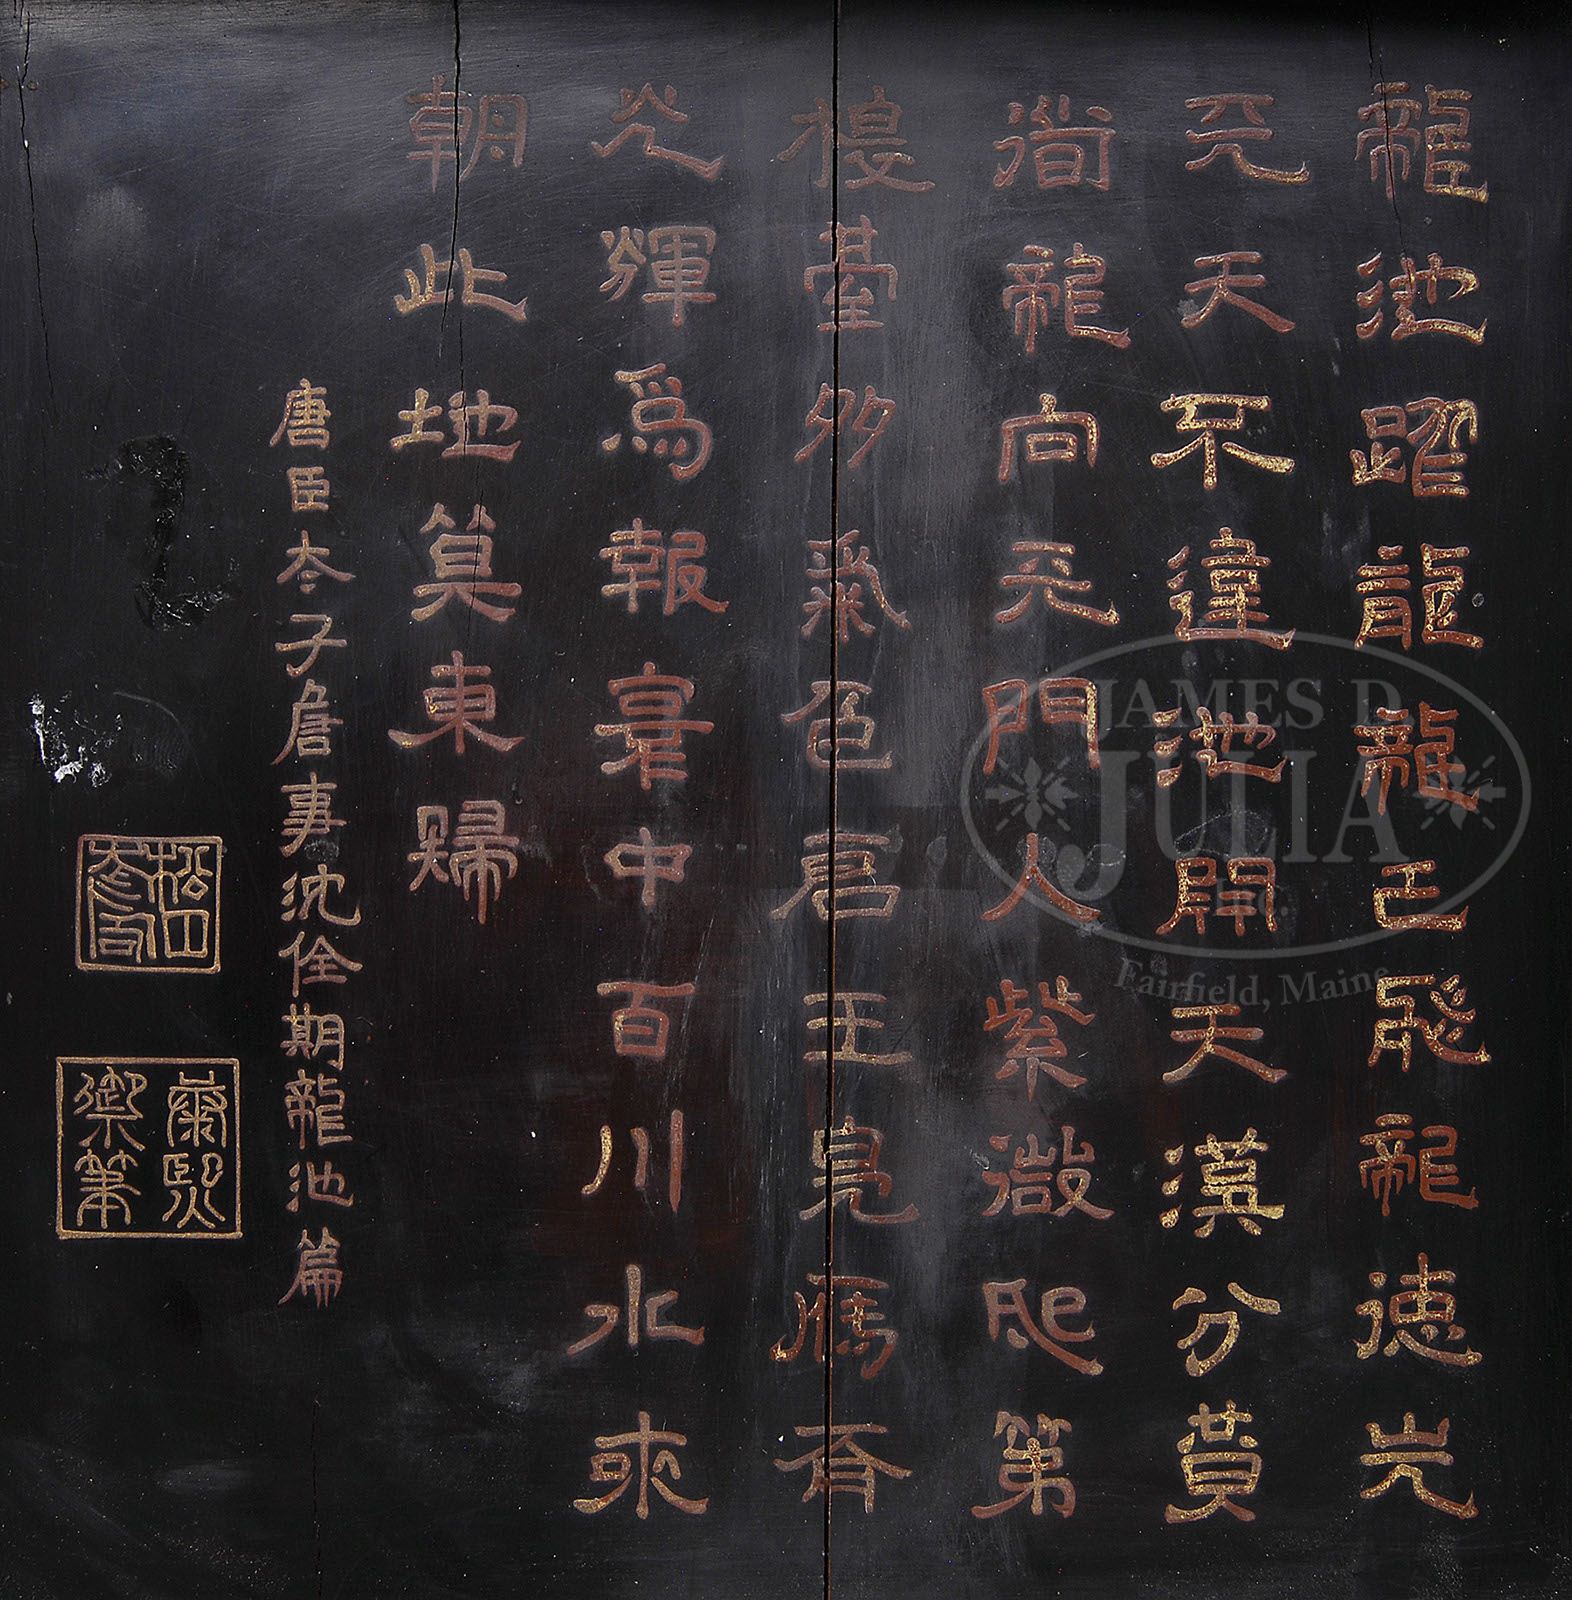 龍池躍龍龍已飛龍德先
天天不違池開天漢分黃
道龍向天門入紫微邸第
樓臺多氣色君王鳧雁有
光輝爲報寰中百川水來
朝此地莫東歸
唐臣太子詹事沈佺期龍池篇
康熙
御筆
JAMES D.
JULIA
Inc.
Fairfield, Maine